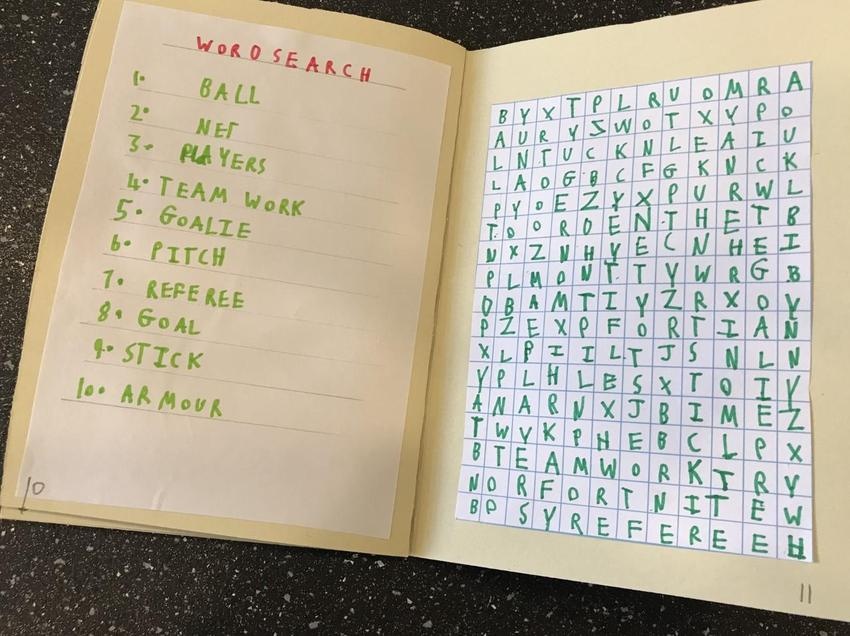 WORDSEARCH
1. BALL
2. NET
3. PLAYERS
4. TEAM WORK
5. GOALIE
6. PITCH
7. REFEREE
8. GOAL
9. STICK
10. ARMOUR
10
B Y X T P L R U O M R A
A U R Y S W O T X Y P O
L N T U C K N L E A I U
L A O G B C F G K N C K
P Y O E Z Y X P U R W L
T O O R D E N T H E T B
N X Z N H Y E C N H E I
P L M O N T T Y W R G B
O B A M T I Y Z R X O Y
P Z E X P F O R T I A N
X L P I I L T J S N L N
Y P L H L E S X T O I Y
A N A R N X J B I M E Z
T W Y K P H E B C L P X
B T E A M W O R K I R Y
N O R F O R T N I T E W
B P S Y R E F E R E E H
11